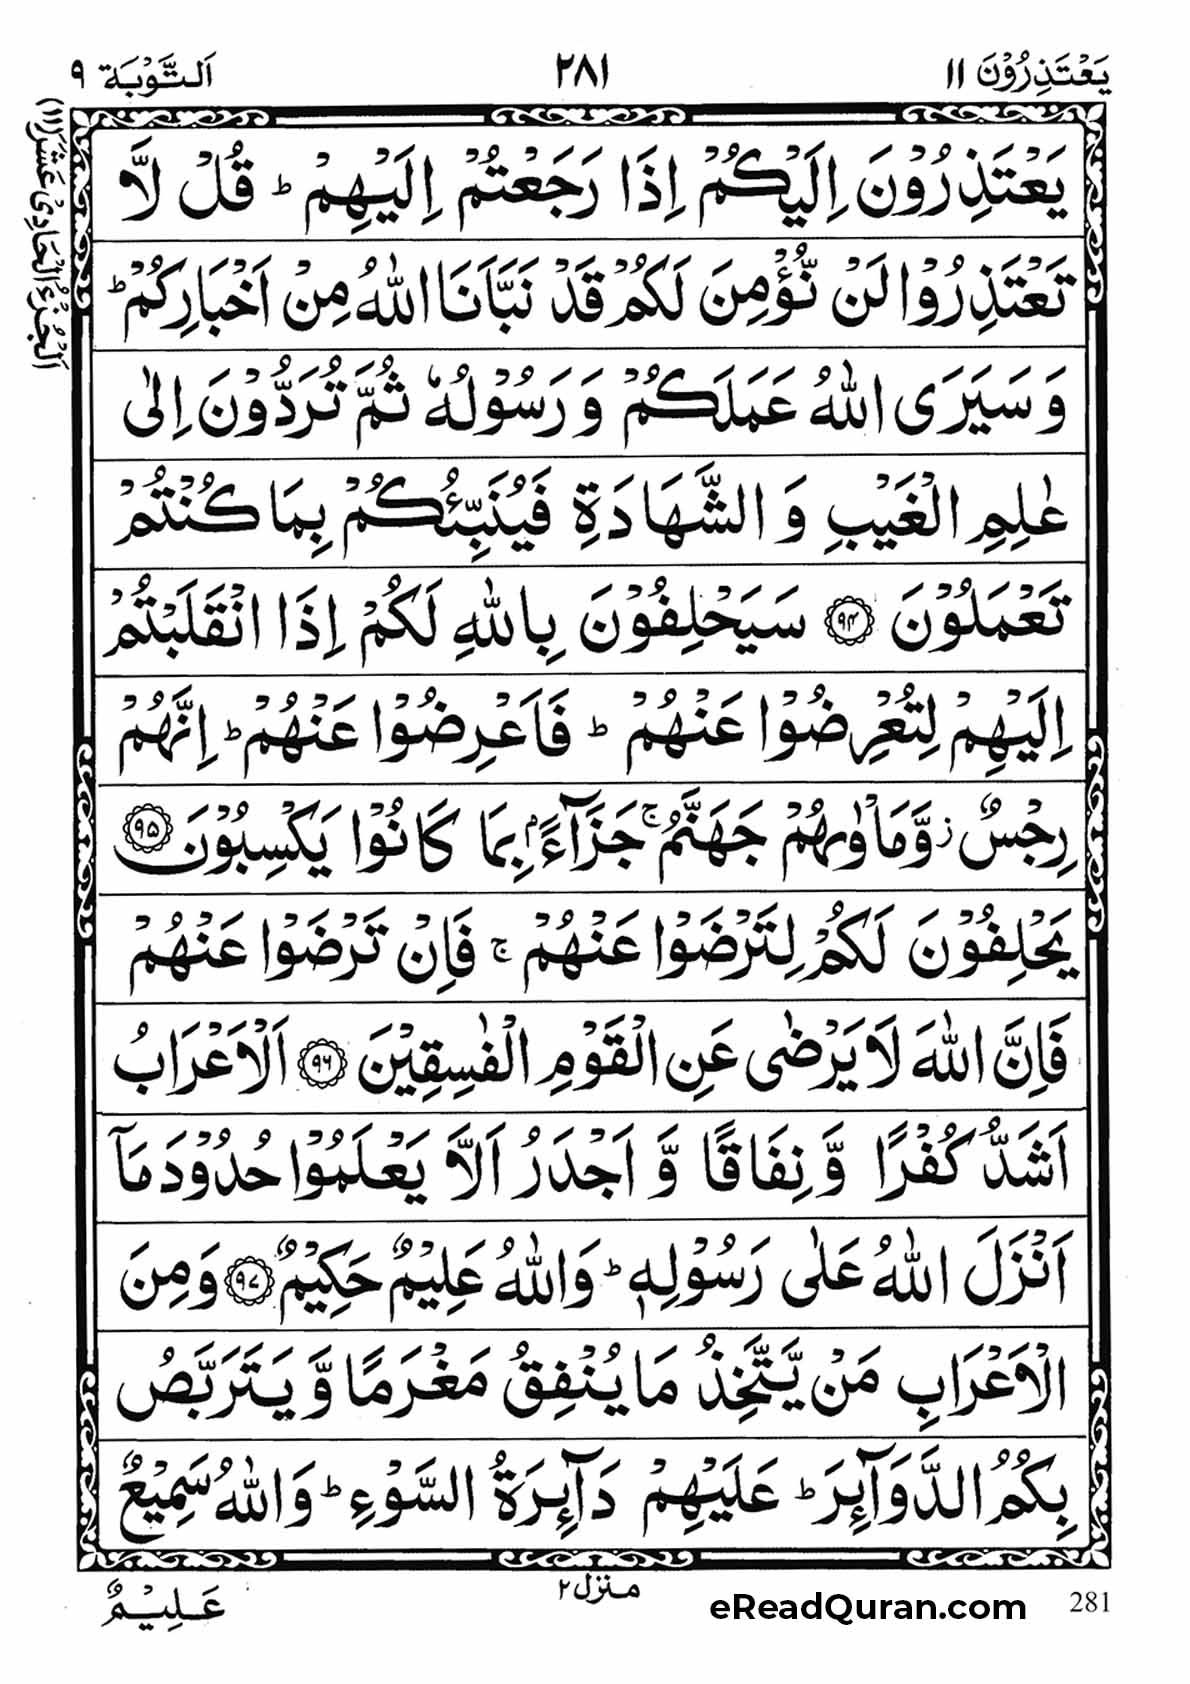 يَعْتَذِرُوْنَ ١١
٢٨١
اَلتَّوْبَة ٩
اَلْجُزْءُ الْحَادِىْ عَشَرَ (١١)
يَعْتَذِرُوْنَ اِلَيْكُمْ اِذَا رَجَعْتُمْ اِلَيْهِمْ ؕ قُلْ لَّا
تَعْتَذِرُوْا لَنْ نُّؤْمِنَ لَكُمْ قَدْ نَبَّاَنَا اللّٰهُ مِنْ اَخْبَارِكُمْ ؕ
وَ سَيَرَى اللّٰهُ عَمَلَكُمْ وَ رَسُوْلُهٗ ثُمَّ تُرَدُّوْنَ اِلٰى
عٰلِمِ الْغَيْبِ وَ الشَّهَادَةِ فَيُنَبِّئُكُمْ بِمَا كُنْتُمْ
تَعْمَلُوْنَ ﴿٩٤﴾ سَيَحْلِفُوْنَ بِاللّٰهِ لَكُمْ اِذَا انْقَلَبْتُمْ
اِلَيْهِمْ لِتُعْرِضُوْا عَنْهُمْ ؕ فَاَعْرِضُوْا عَنْهُمْ ؕ اِنَّهُمْ
رِجْسٌ ز وَّمَاْوٰىهُمْ جَهَنَّمُ ۚ جَزَآءًۢ بِمَا كَانُوْا يَكْسِبُوْنَ ﴿٩٥﴾
يَحْلِفُوْنَ لَكُمْ لِتَرْضَوْا عَنْهُمْ ۚ فَاِنْ تَرْضَوْا عَنْهُمْ
فَاِنَّ اللّٰهَ لَا يَرْضٰى عَنِ الْقَوْمِ الْفٰسِقِيْنَ ﴿٩٦﴾ اَلْاَعْرَابُ
اَشَدُّ كُفْرًا وَّ نِفَاقًا وَّ اَجْدَرُ اَلَّا يَعْلَمُوْا حُدُوْدَ مَآ
اَنْزَلَ اللّٰهُ عَلٰى رَسُوْلِهٖ ؕ وَاللّٰهُ عَلِيْمٌ حَكِيْمٌ ﴿٩٧﴾ وَمِنَ
الْاَعْرَابِ مَنْ يَّتَّخِذُ مَا يُنْفِقُ مَغْرَمًا وَّ يَتَرَبَّصُ
بِكُمُ الدَّوَآئِرَ ؕ عَلَيْهِمْ دَآئِرَةُ السَّوْءِ ؕ وَاللّٰهُ سَمِيْعٌ
عَلِيْمٌ
منزل ٢
eReadQuran.com
281